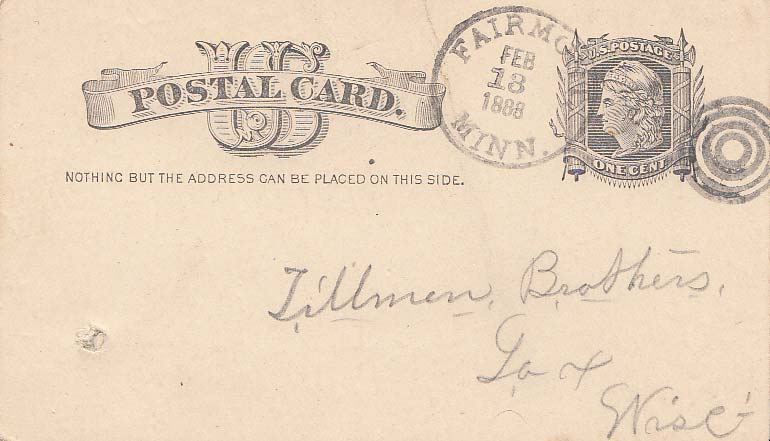 US
POSTAL CARD.
NOTHING BUT THE ADDRESS CAN BE PLACED ON THIS SIDE.
FAIRMO
FEB
13
1888
MINN.
U.S. POSTAGE
ONE CENT
Tillmen, Brothers,
Wisc